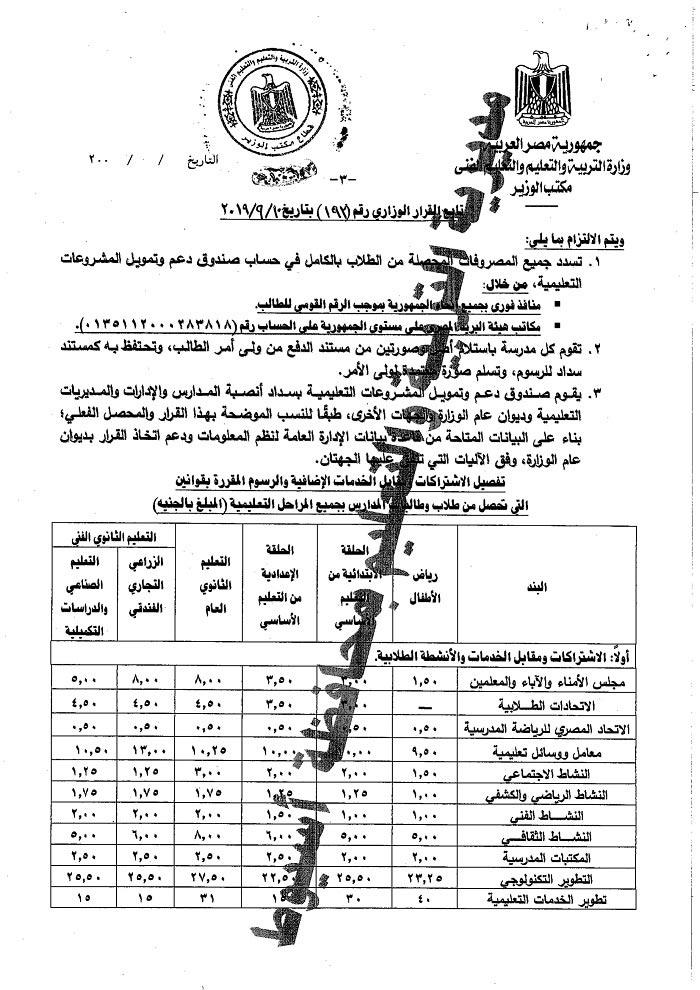 جمهورية مصر العربية
وزارة التربية والتعليم والتعليم الفنى
مكتب الوزير
وزارة التربية والتعليم والتعليم الفني
قطاع مكتب الوزير
التاريخ / / ٢٠٠
-٣-
تابع القرار الوزاري رقم (١٩٢) بتاريخ ٢٠١٩/٩/١٠
ويتم الالتزام بما يلي:
١. تسدد جميع المصروفات المحصلة من الطلاب بالكامل في حساب صندوق دعم وتمويل المشروعات
التعليمية، من خلال:
▪ منافذ فورى بجميع أنحاء الجمهورية بموجب الرقم القومي للطالب.
▪ مكاتب هيئة البريد المصرى على مستوي الجمهورية على الحساب رقم (٠١٣٥١١٢٠٠٠٢٨٣٨١٨).
٢. تقوم كل مدرسة باستلام أصل وصورتين من مستند الدفع من ولى أمر الطالب، وتحتفظ به كمستند
سداد للرسوم، وتسلم صورة معتمدة لولى الأمر.
٣. يقوم صندوق دعم وتمويل المشروعات التعليمية بسداد أنصبة المدارس والإدارات والمديريات
التعليمية وديوان عام الوزارة والجهات الأخرى، طبقًا للنسب الموضحة بهذا القرار والمحصل الفعلي؛
بناء على البيانات المتاحة من قاعدة بيانات الإدارة العامة لنظم المعلومات ودعم اتخاذ القرار بديوان
عام الوزارة، وفق الآليات التي تتفق عليها الجهتان.
تفصيل الاشتراكات ومقابل الخدمات الإضافية والرسوم المقررة بقوانين
التى تحصل من طلاب وطالبات المدارس بجميع المراحل التعليمية (المبلغ بالجنيه)
البند رياض الأطفال الحلقة الابتدائية من التعليم الأساسي الحلقة الإعدادية من التعليم الأساسي التعليم الثانوي العام التعليم الثانوي الفني
الزراعي التجاري الفندقي التعليم الصناعي والدراسات التكميلية
أولًا: الاشتراكات ومقابل الخدمات والأنشطة الطلابية.
مجلس الأمناء والآباء والمعلمين ١,٥٠ ٣,٥٠ ٨,٠٠ ٨,٠٠ ٥,٠٠
الاتحادات الطلابية — ٣,٥٠ ٤,٥٠ ٤,٥٠ ٤,٥٠
الاتحاد المصري للرياضة المدرسية ٠,٥٠ ٠,٥٠ ٠,٥٠ ٠,٥٠ ٠,٥٠ ٠,٥٠
معامل ووسائل تعليمية ٩,٥٠ ١٠,٠٠ ١٠,٢٥ ١٣,٠٠ ١٠,٥٠
النشاط الاجتماعي ١,٥٠ ٢,٠٠ ٢,٠٠ ٣,٠٠ ١,٢٥ ١,٢٥
النشاط الرياضي والكشفي ١,٠٠ ١,٢٥ ١,٢٥ ١,٧٥ ١,٧٥ ١,٧٥
النشاط الفني ١,٠٠ ١,٠٠ ١,٥٠ ٢,٠٠ ٢,٠٠ ٢,٠٠
النشاط الثقافي ٥,٠٠ ٥,٠٠ ٦,٠٠ ٨,٠٠ ٦,٠٠ ٥,٠٠
المكتبات المدرسية ٢,٠٠ ٢,٠٠ ٢,٥٠ ٢,٥٠ ٢,٥٠ ٢,٥٠
التطوير التكنولوجي ٢٣,٢٥ ٢٥,٥٠ ٢٢,٥٠ ٢٧,٥٠ ٢٥,٥٠ ٢٥,٥٠
تطوير الخدمات التعليمية ٤٠ ٣٠ ٣١ ١٥ ١٥
مديرية التربية والتعليم بمحافظة أسيوط